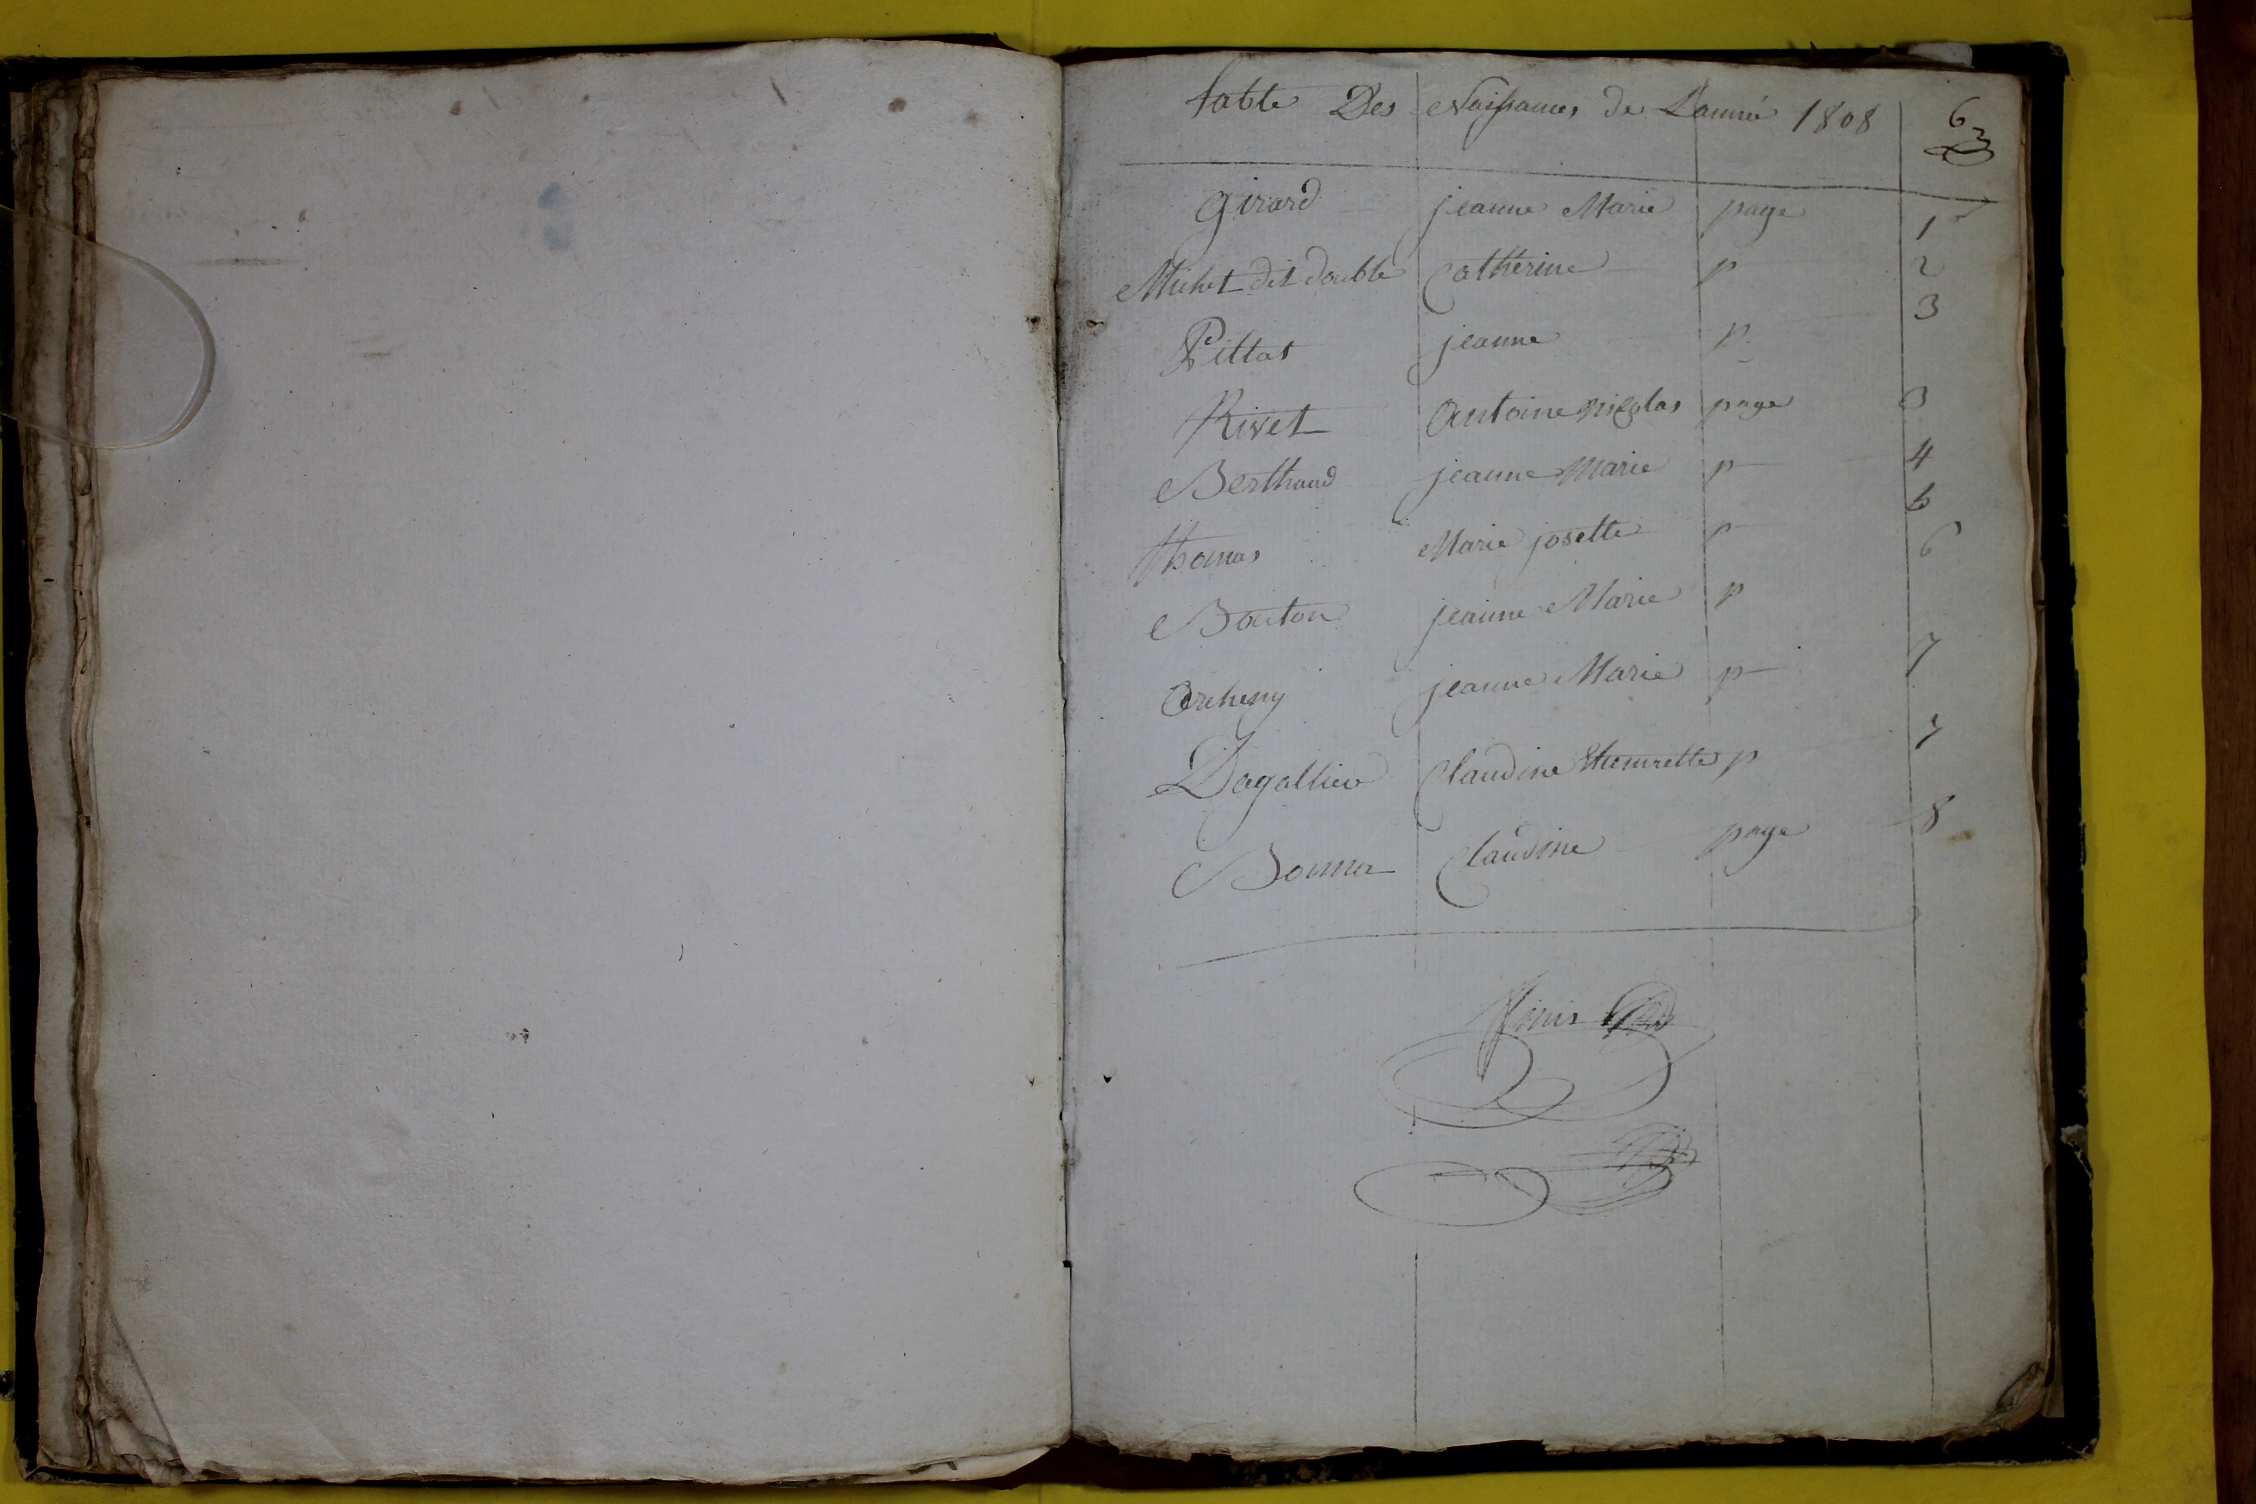 table Des Naissances de L'année 1808
6
Girard jeanne Marie page 1
Michel dit double Catherine p 2
jeanne p. 3
Rivet Antoine nicolas page 3
Berthaud jeanne Marie p 4
thomas Marie josette p 5
Bouton jeanne Marie p 6
jeanne Marie p 7
Dagallier Claudine p 7
Claudine page 8